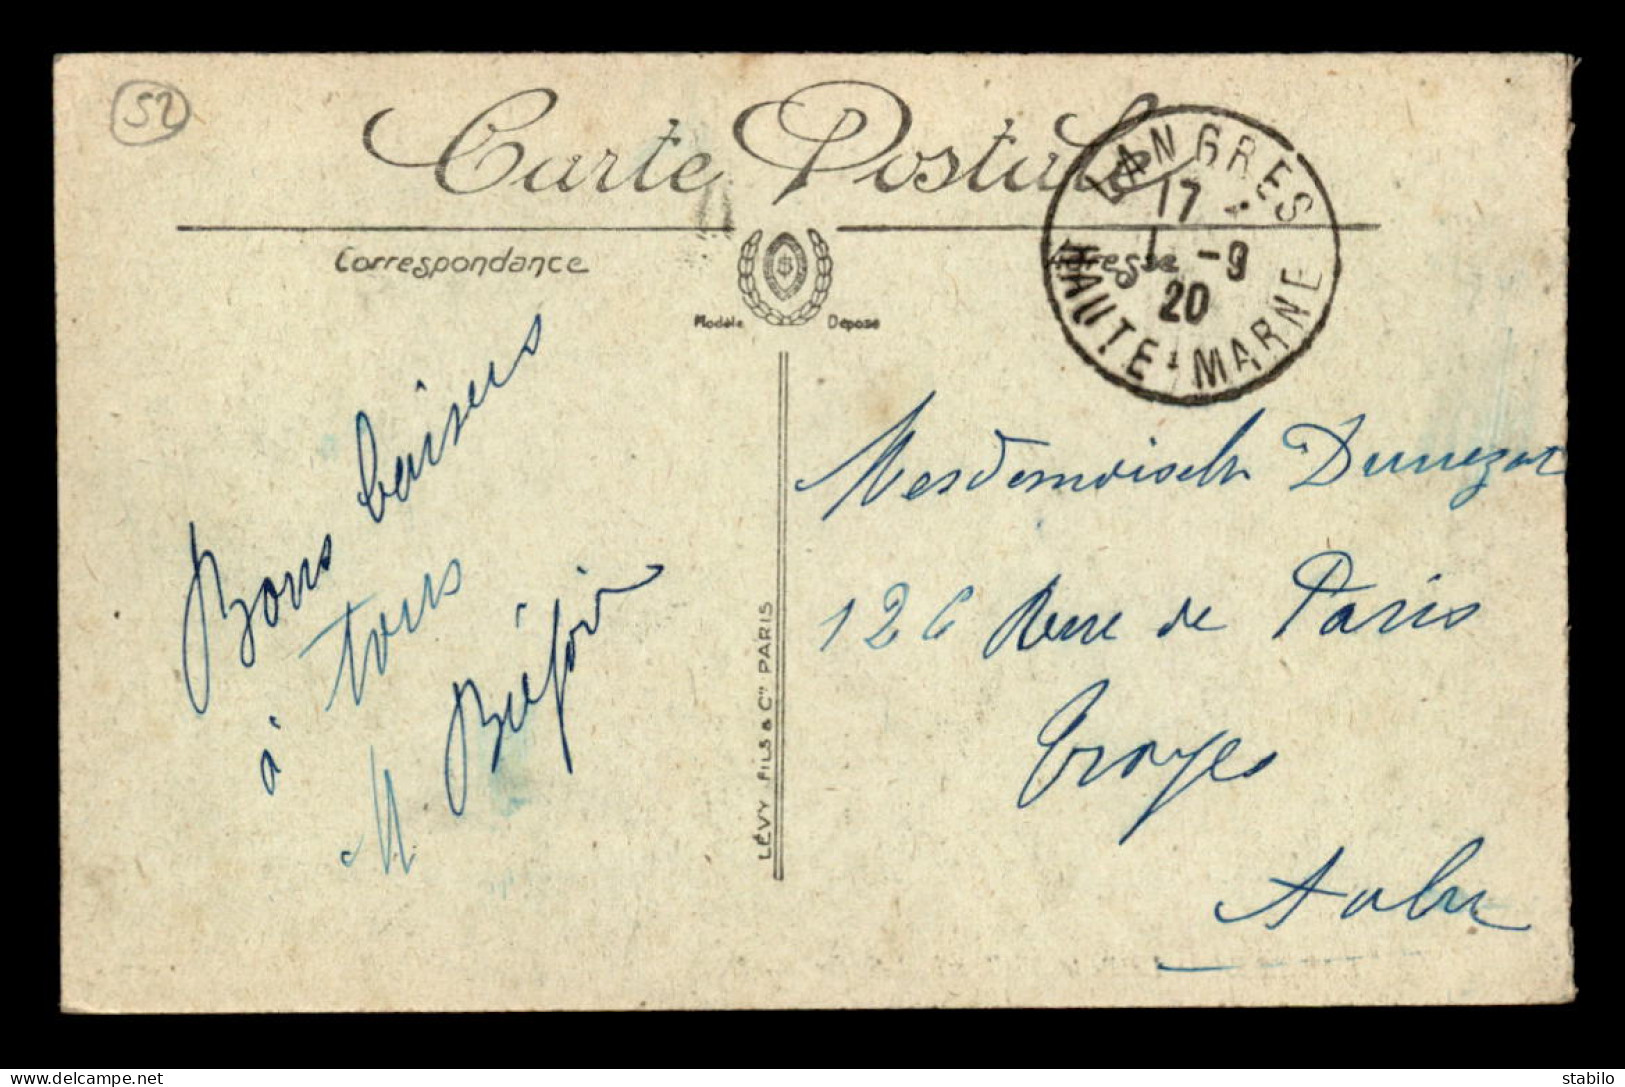 52
Carte Postale
Correspondance
Adresse
Modèle Déposé
LANGRES
17
1 -9
20
HAUTE-MARNE
Bons baisers
à tous
M
LÉVY FILS & Cie PARIS
Mesdemoiselles
126 Rue de Paris
Troyes
Aube
stabilo
delcampe.net